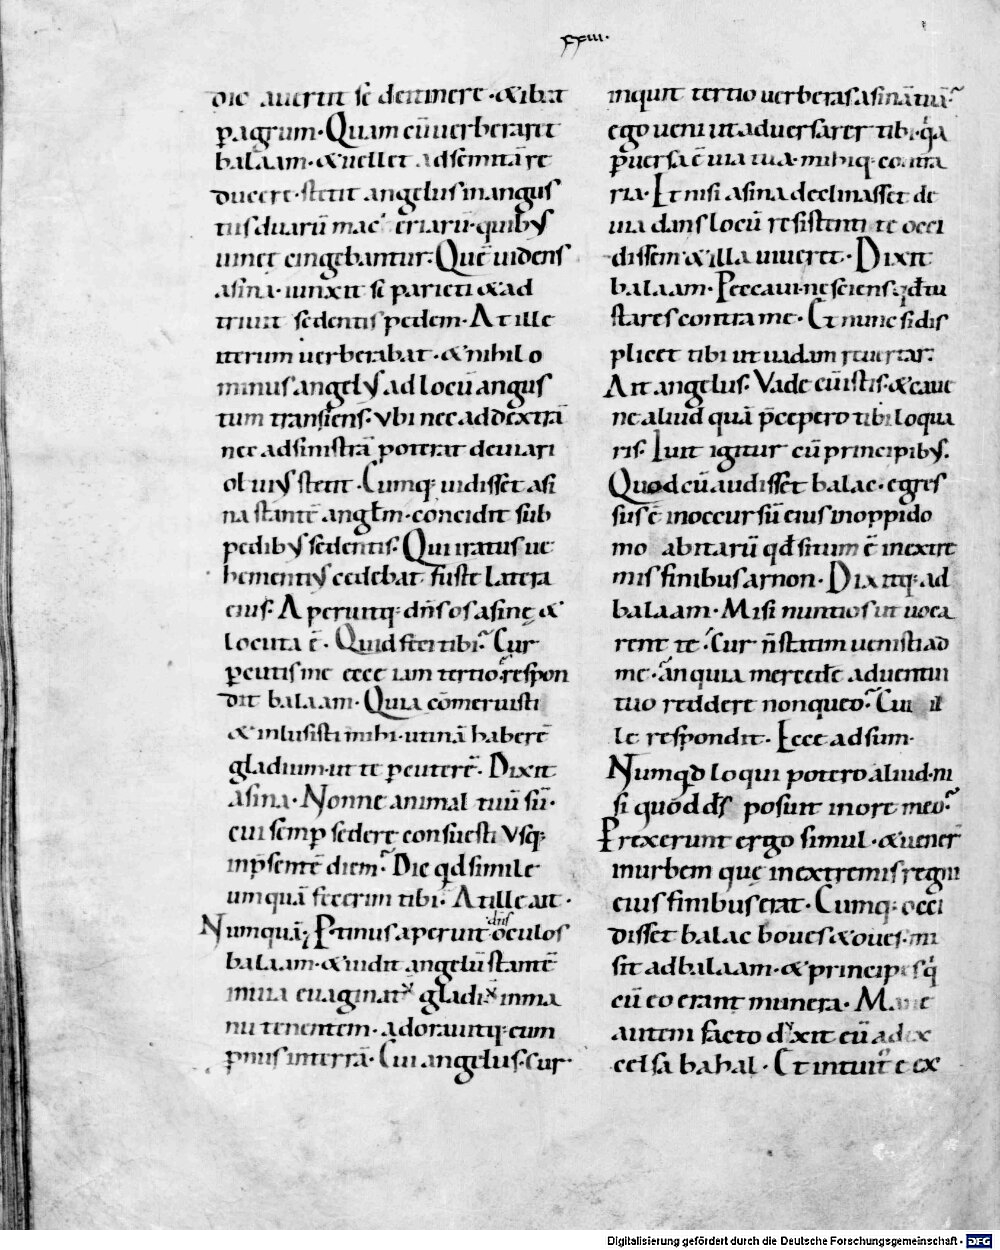 xxiii.
dio auertit se deitinere · & ibat
p̱ agrum · Quam cū uerberaret
balaam · & uellet ad semitā re
ducere · stetit angelus in angus
tus duarū maceriarū · quib;
uineę cingebantur. Quē uidens
asina · iunxit se parieti & ad
triuit sedentis pedem · At ille
iterum uerberabat · & nihilo
minus angel; ad locū angus
tum transiens · ubi nec ad dextrā
nec ad sinistrā poterat deuiari
obui; stetit · Cumq; uidisset asi
na stantē angłm · concidit sub
pedib; sedentis. Qui iratus ue
hementi; cedebat fuste latera
eius. Aperuitq; dn̄s os asinę &
locuta ē · Quid feci tibi? Cur
p̱cutis me ecce iam tertio? respon
dit balaam · Quia cōmeruisti
& inlusisti mihi · utinā haberē
gladium · ut te p̱cuterē. Dixit
asina · Nonne animal tuū sū ·
cui semp̱ sedere consuesti usq;
in p̄sentē diem? Dic qd simile
umquā fecerim tibi. At ille ait ·
Numquā; Ptinus aperuit dn̄s oculos
balaam · & uidit angelū stantē
in uia euaginatx gladix in ma
nu tenentem · adorauitq; eum
p̱nus in terrā · Cui angelus · Cur ·
inquit tertio uerberas asinā tuā?
ego ueni ut aduersarer tibi · qa
p̱uersa ē uia tua · mihiq; contra
ria · Et nisi asina declinasset de
uia dans locū resistenti te occi
dissem & illa uiueret · Dixit
balaam · Peccaui · nesciens qd tu
stares contra me · Et nunc si dis
plicet tibi ut uadam reuertar.
Ait angelus. Vade cū istis. & caue
ne aliud quā p̄cepero tibi loqua
ris. Iuit igitur cū principib;.
Quod cū audisset balac · egres
sus ē in occursū eius in oppido
moabitarū qd situm ē in extre
mis finibus arnon · Dixitq; ad
balaam · Misi nuntios ut uoca
rent te? Cur n̄ statim uenisti ad
me · an quia mercedē aduentui
tuo reddere non queo? Cui il
le respondit · Ecce adsum ·
Numqd loqui potero aliud · ni
si quod ds posuit in ore meo?
Prexerunt ergo simul · & uener
in urbem quę in extremis regni
eius finibus erat · Cumq; occi
disset balac boues & oues · mi
sit ad balaam · & principes q
cū eo erant munera · Mane
autem facto duxit eū ad ex
celsa bahal · Et intuitus ē ex
Digitalisierung gefördert durch die Deutsche Forschungsgemeinschaft - DFG